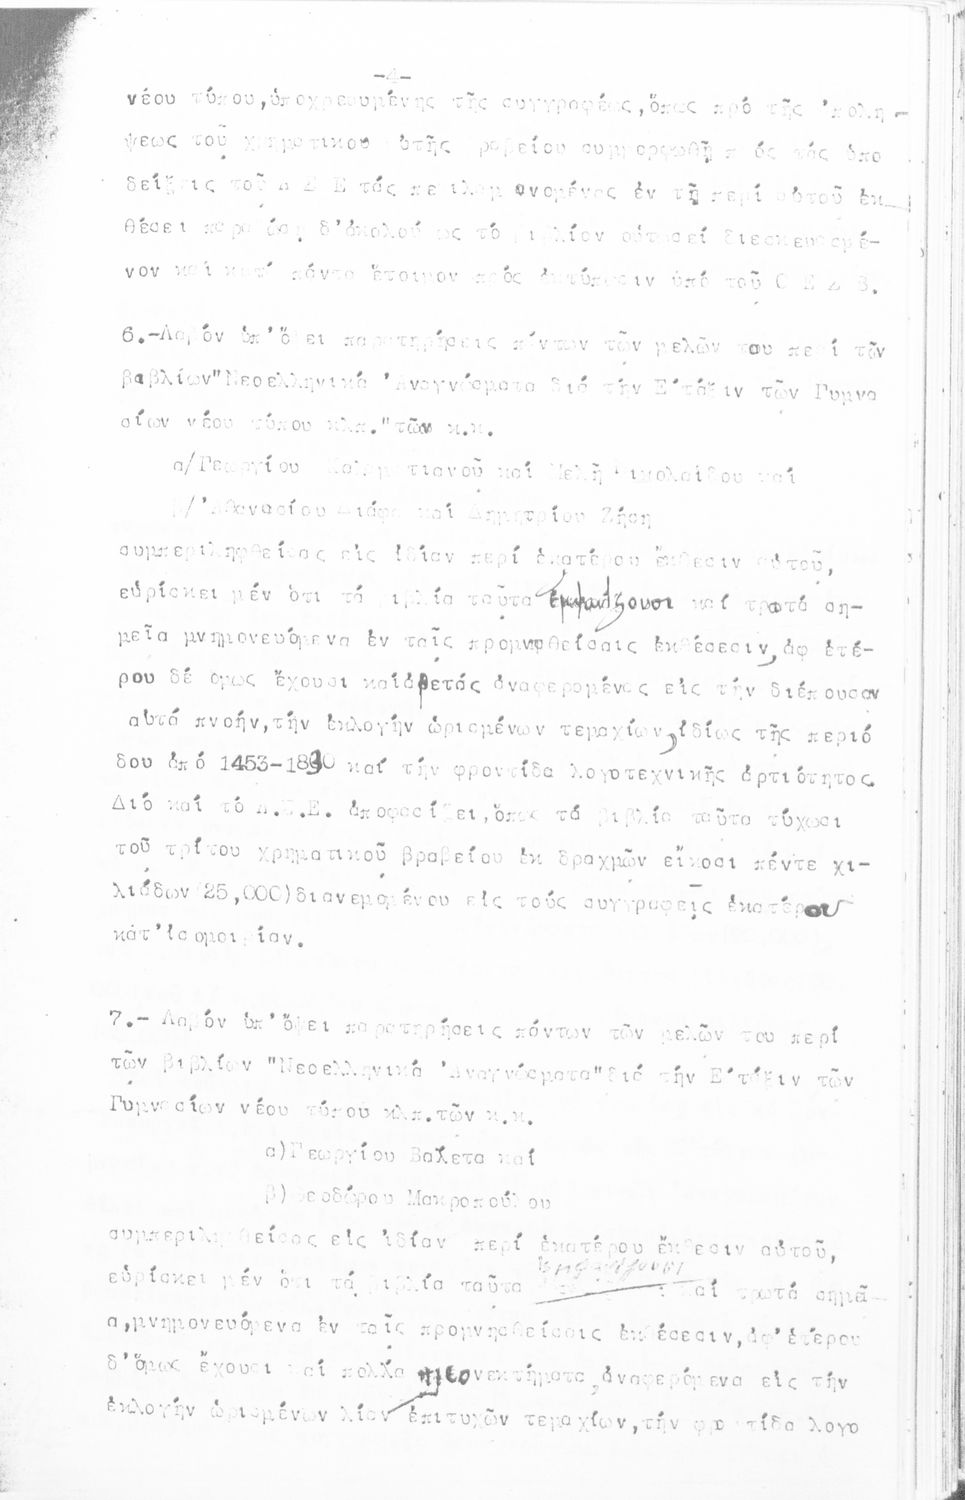 -4-
νέου τύπου,ὑποχρεουμένης τῆς συγγραφέως,ὅπως πρό τῆς 'πολη-
ψεως τοῦ χρηματικου ὑτῆς ραβείου συμμορφωθῇ π ός τάς ὑπο
δείξεις τοῦ Α Σ Ε τάς πε ιλαμ ανομένας ἐν τῇ περί αὐτοῦ ἐκ-
θέσει δ'ἀκολού ως τό βιβλίον οὑτωσεί διεσκευασμέ-
νον καί κατά πάντα ἕτοιμον πρός ἐκτύπωσιν ὑπό τοῦ Ο Ε Σ Β.
6.-Λαβόν ὑπ'ὄψει παρατηρήσεις πάντων τῶν μελῶν του περί τῶν
βαβλίων"Νεοελληνικά 'Αναγνώσματα διά τήν Ε'τάξιν τῶν Γυμνα
σίων νέου τύπου κλπ."τῶν κ.κ.
α/Γεωργίου Καλαματιανοῦ καί Μελῆ Νικολαίδου καί
β/'Αθανασίου Διάφα καί Δημητρίου Ζήση
συμπεριληφθείσας εἰς ἰδίαν περί ἑκατέρου ἔκθεσιν αὐτοῦ,
εὑρίσκει μέν ὅτι τά βιβλία ταῦτα ἐμφανίζουσι καί τρωτά ση-
μεῖα μνημονευόμενα ἐν ταῖς προμνησθείσαις ἐκθέσεσιν,ἀφ ἑτέ-
ρου δέ ὅμως ἔχουσι καίἀρετάς ἀναφερομένας εἰς τήν διέπουσαν
αὐτά πνοήν,τήν ἐκλογήν ὡρισμένων τεμαχίων,ἰδίως τῆς περιό
δου ἀπό 1453-1830 καί τήν φροντίδα λογοτεχνικῆς ἀρτιότητος.
Διό καί τό Α.Σ.Ε. ἀποφασίζει,ὅπως τά βιβλία ταῦτα τύχωσι
τοῦ τρίτου χρηματικοῦ βραβείου ἐκ δραχμῶν εἴκοσι πέντε χι-
λιάδων (25,000)διανεμομένου εἰς τούς συγγραφεῖς ἑκατέρου
κάτ'ἰσομοιρίαν.
7.- Λαβόν ὑπ'ὄψει παρατηρήσεις πάντων τῶν μελῶν του περί
τῶν βιβλίων "Νεοελληνικά 'Αναγνώσματα"διά τήν Ε'τάξιν τῶν
Γυμνασίων νέου τύπου κλπ.τῶν κ.κ.
α)Γεωργίου Βαλέτα καί
β)Θεοδώρου Μακροπούλου
συμπεριληφθείσας εἰς ἰδίαν περί ἑκατέρου ἔκθεσιν αὐτοῦ,
εὑρίσκει μέν ὅτι τά βιβλία ταῦτα ἐμφανίζουσι καί τρωτά σημεῖ-
α,μνημονευόμενα ἐν ταῖς προμνησθείσαις ἐκθέσεσιν,ἀφ'ἑτέρου
δ'ὅμως ἔχουσι καί πολλά πλεονεκτήματα,ἀναφερόμενα εἰς τήν
ἐκλογήν ὡρισμένων λίαν ἐπιτυχῶν τεμαχίων,τήν φροντίδα λογο